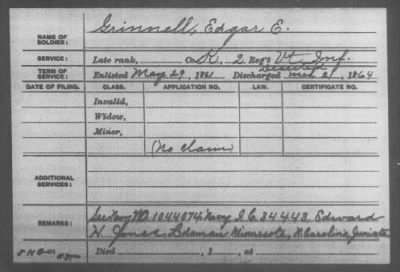 NAME OF SOLDIER: Grinnell, Edgar E.
SERVICE: Late rank, Co. K, 2 Reg't Vt. Inf.
Deserted
TERM OF SERVICE: Enlisted May 29, 1861 Discharged Mch 21, 1864
DATE OF FILING. CLASS. APPLICATION NO. LAW. CERTIFICATE NO.
Invalid,
Widow,
Minor,
(No claim)
ADDITIONAL SERVICES:
REMARKS: See Navy WO. 1044074 Navy I.C. 34443. Edward
H. Jones, Ldsman, Minnesota, N. Carolina, Juniata
Died , 1 , at